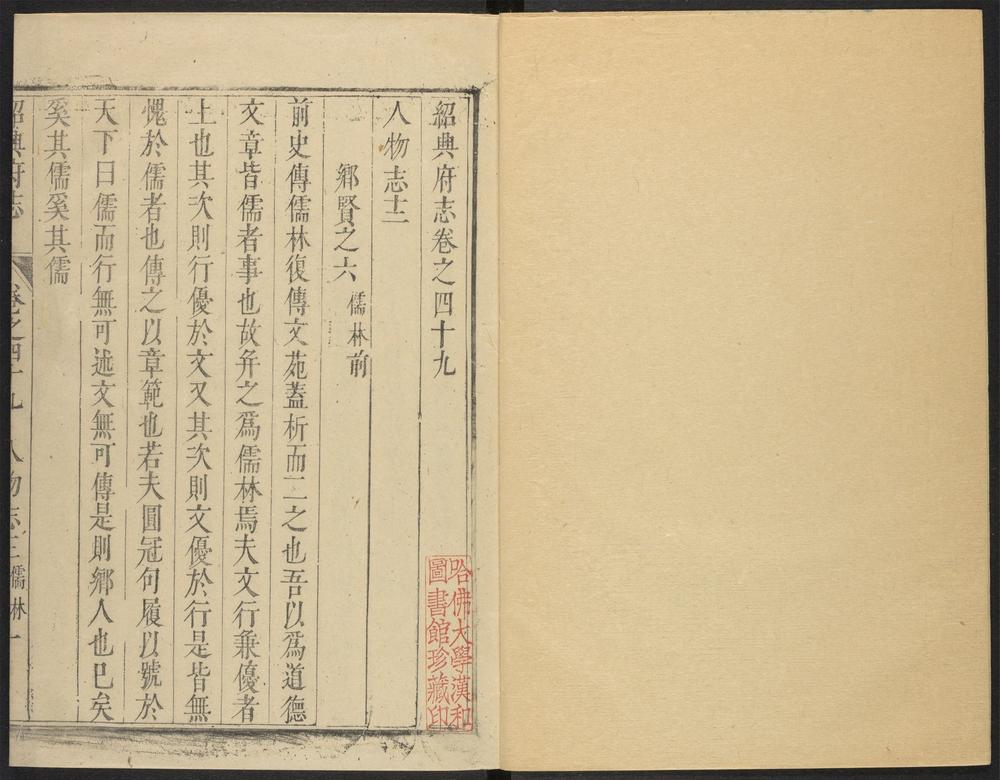 紹興府志卷之四十九
人物志十二
鄉賢之六 儒林前
前史傳儒林復傳文苑蓋析而二之也吾以爲道德
文章皆儒者事也故并之爲儒林焉夫文行兼優者
上也其次則行優於文又其次則文優於行是皆無
愧於儒者也傳之以章範也若夫圓冠句履以號於
天下曰儒而行無可述文無可傳是則鄉人也已矣
奚其儒奚其儒
紹興府志 卷之四十九 人物志十二 儒林 一
哈佛大學漢和
圖書館珍藏印